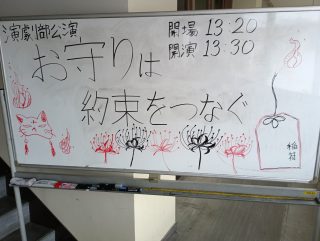 演劇部公演
開場 13:20
開演 13:30
お守りは
約束をつなぐ